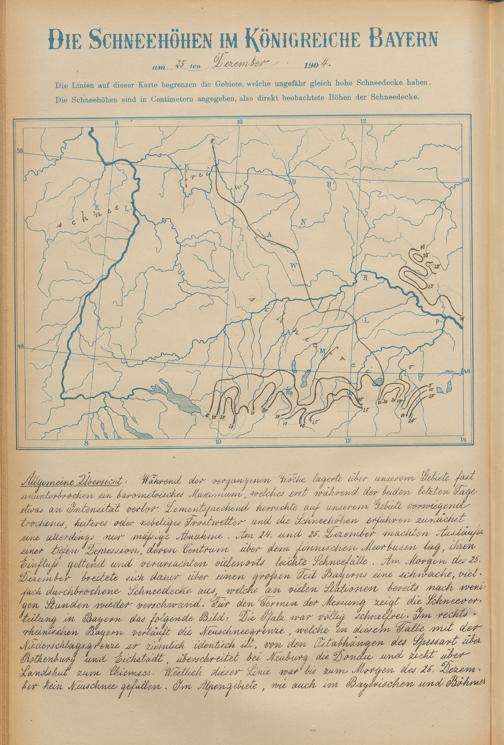 DIE SCHNEEHÖHEN IM KÖNIGREICHE BAYERN
am 25 ten Dezember 1904.
Die Linien auf dieser Karte begrenzen die Gebiete, welche ungefähr gleich hohe Schneedecke haben.
Die Schneehöhen sind in Centimetern angegeben, also direkt beobachtete Höhen der Schneedecke.
8 10 12
50 50
schnee frei
Allgemeine Übersicht. Während der vergangenen Woche lagerte über unserem Gebiete fast
ununterbrochen ein barometrisches Maximum, welches erst während der beiden letzten Tage
etwas an Intensität verlor. Dementsprechend herrschte auf unserem Gebiete vorwiegend
trockenes, heiteres oder nebeliges Frostwetter und die Schneehöhen erfuhren zunächst
eine allerdings nur mäßige Abnahme. Am 24. und 25. Dezember machten Ausläufer
einer tiefen Depression, deren Centrum über dem finnischen Meerbusen lag, ihren
Einfluß geltend und verursachten vielenorts leichte Schneefälle. Am Morgen des 25.
Dezember breitete sich daher über einen großen Teil Bayerns eine schwache, viel-
fach durchbrochene Schneedecke aus, welche an vielen Stationen bereits nach weni-
gen Stunden wieder verschwand. Für den Termin der Messung zeigt die Schneever-
teilung in Bayern das folgende Bild: Die Pfalz war völlig schneefrei. Im rechts-
rheinischen Bayern verläuft die Neuschneegrenze, welche in diesem Falle mit der
Niederschlagsgrenze so ziemlich identisch ist, von den Ostabhängen des Spessart über
Rothenburg und Eichstädt, überschreitet bei Neuburg die Donau und zieht über
Landshut zum Chiemsee. Westlich dieser Linie war bis zum Morgen des 25. Dezem-
ber kein Neuschnee gefallen. Im Alpengebiete, wie auch im Bayerischen und Böhmer